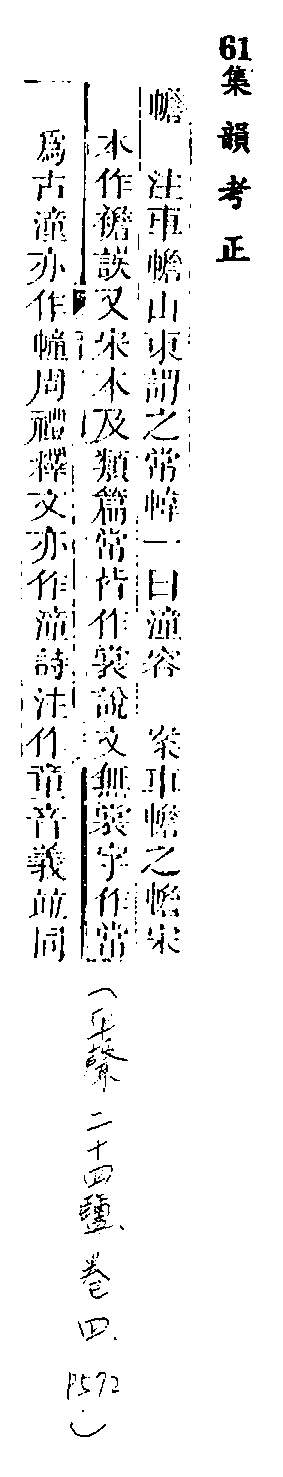 61集韻考正
幨　注車幨山東謂之常幃一曰潼容　案車幨之幨宋
本作襜誤又宋本及類篇常皆作裳說文無裳字作常
爲古潼亦作幢周禮釋文亦作潼詩注作童音義竝同
(平聲二十四鹽、卷四、P572、)